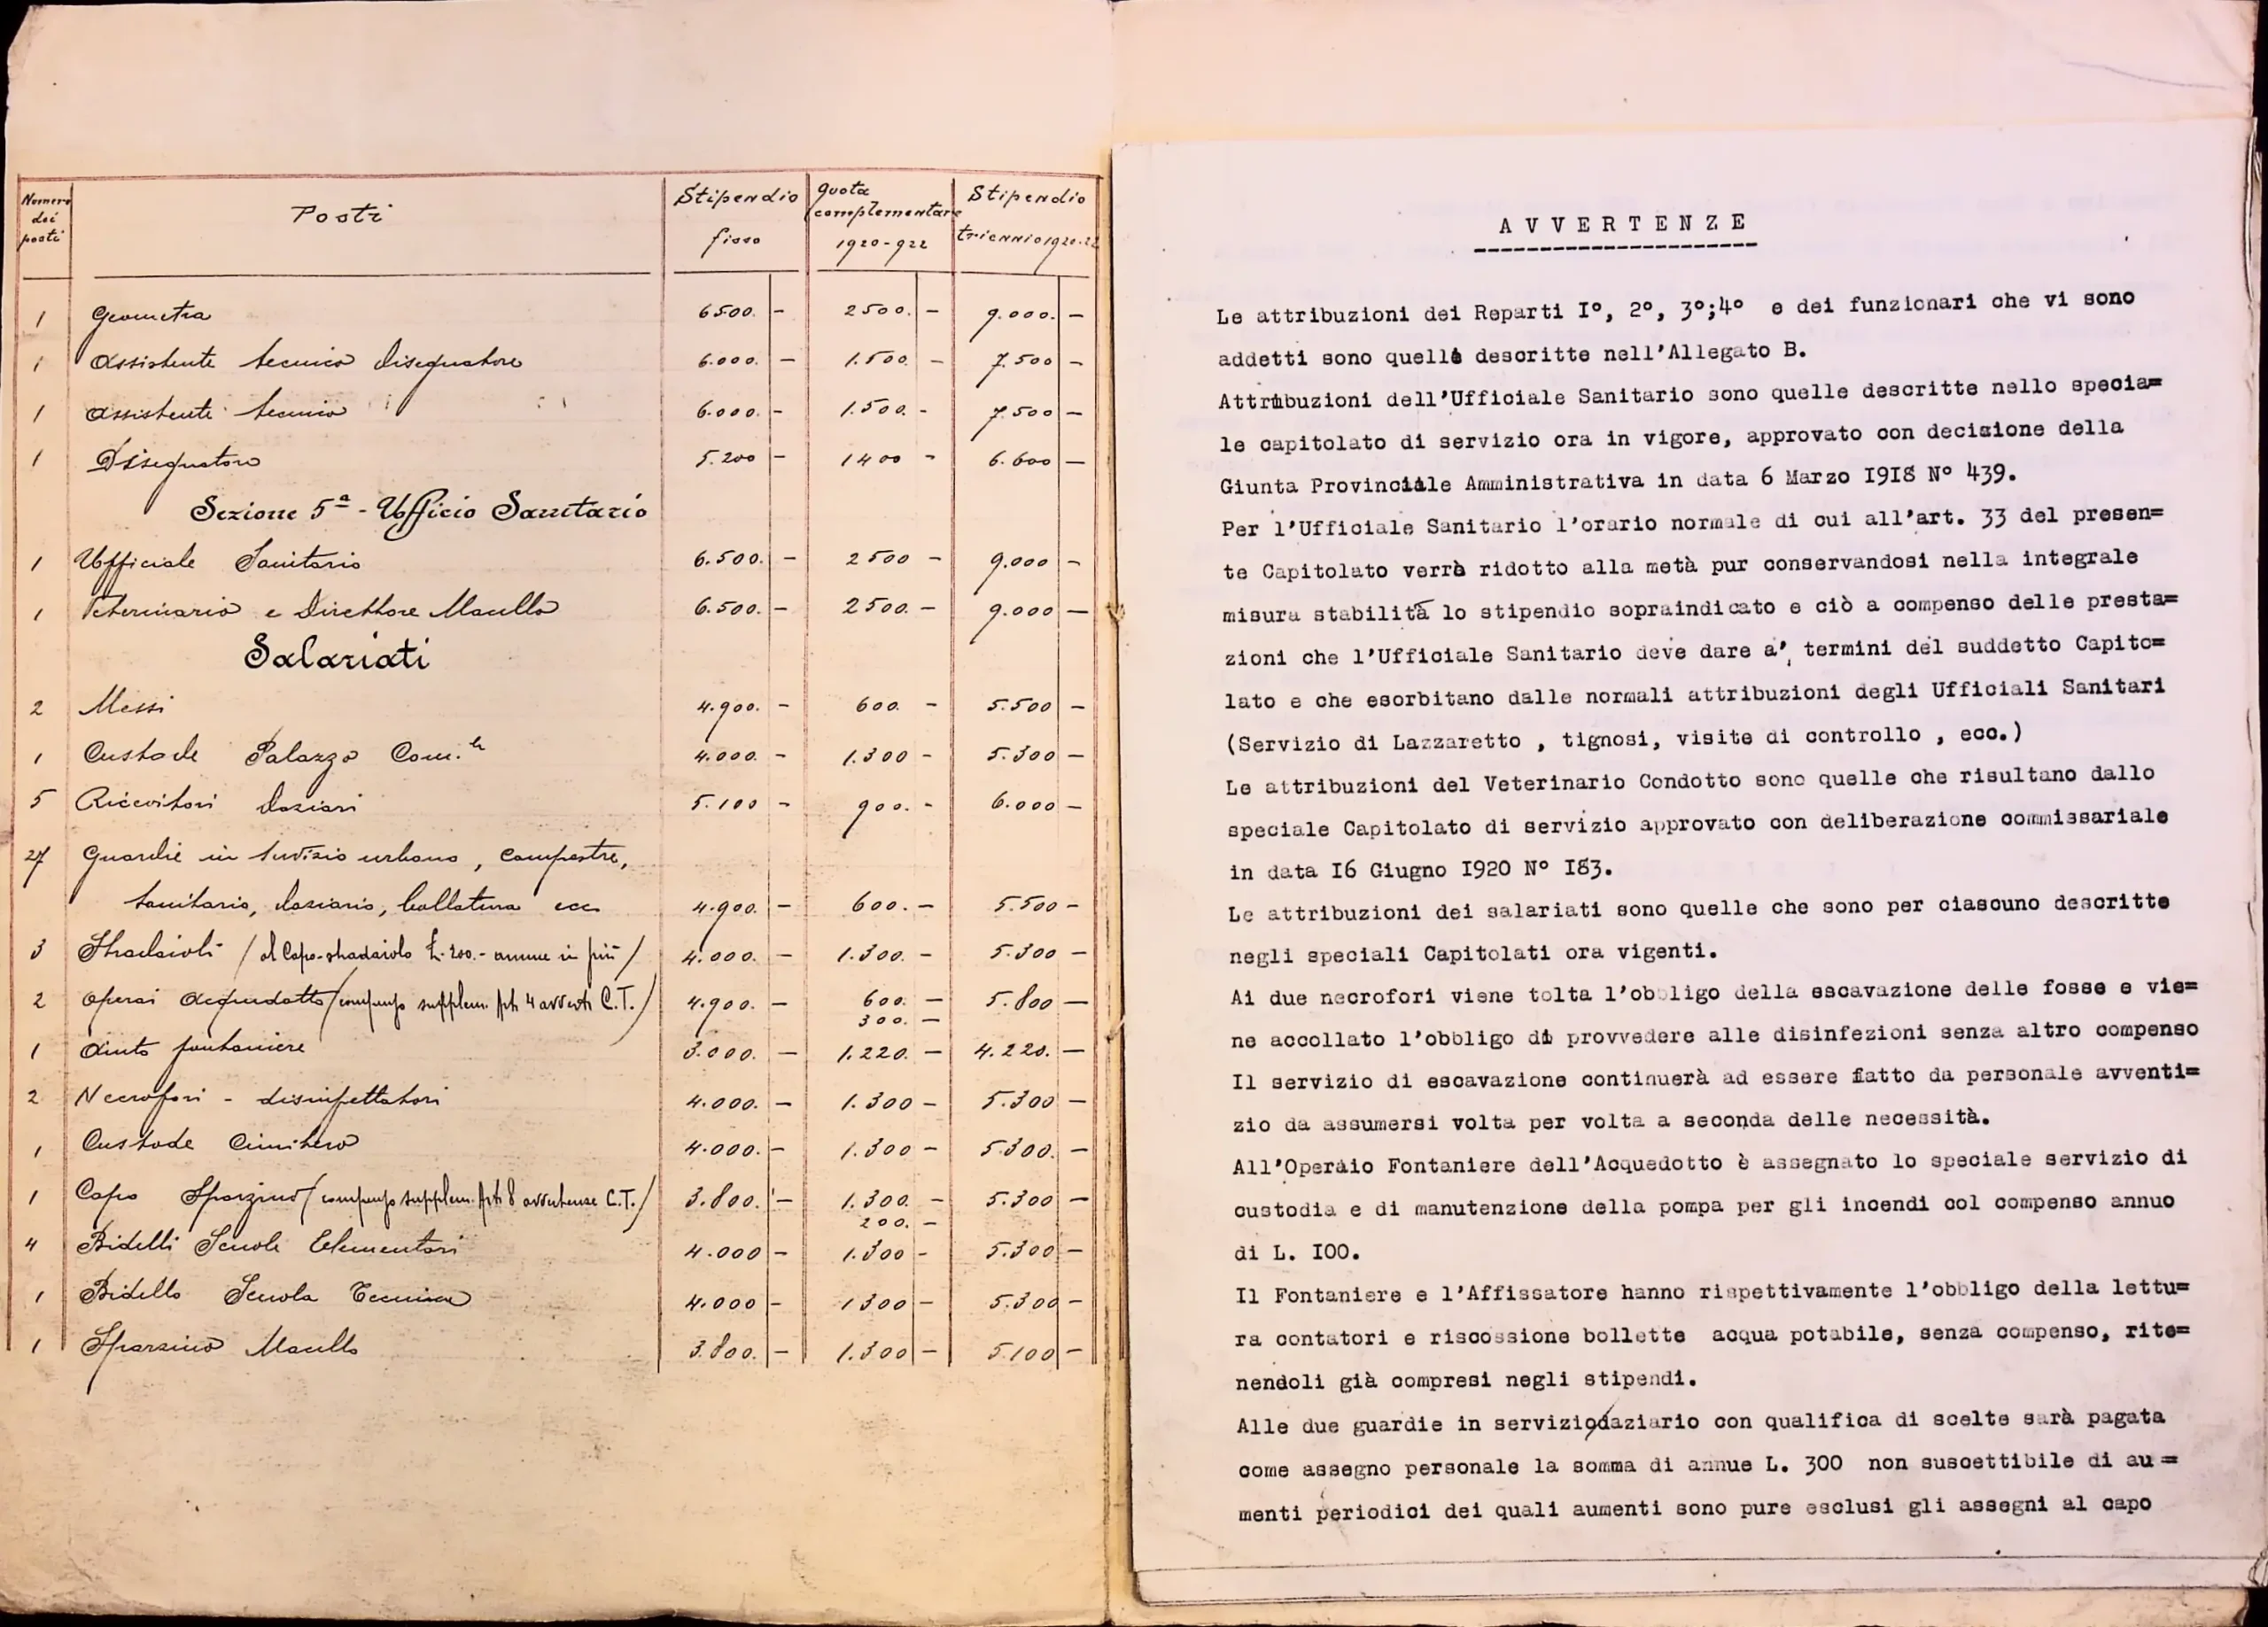 Numero dei posti | Posti | Stipendio fisso | quota complementare 1920-922 | Stipendio triennio 1920-22
1 Geometra 6500.- 2500.- 9.000.-
1 Assistente tecnico disegnatore 6.000.- 1.500.- 7.500-
1 Assistente tecnico 6.000.- 1.500.- 7.500-
1 Disegnatore 5.200- 1400- 6.600-
Sezione 5ª - Ufficio Sanitario
1 Ufficiale Sanitario 6.500.- 2500- 9.000-
1 Veterinario e Direttore Macello 6.500.- 2500.- 9.000-
Salariati
2 Messi 4.900.- 600.- 5.500-
1 Custode Palazzo Com.le 4.000.- 1.300- 5.300-
5 Ricevitori daziari 5.100- 900.- 6.000-
27 Guardie in servizio urbano, campestre,
sanitario, daziario, bollatura ecc 4.900.- 600.- 5.500-
3 Stradaioli / al Capo-stradaiolo L. 200.- annue in più / 4.000.- 1.300.- 5.300-
2 Operai Acquedotto / compenso supplem. Art. 4 avvert. C.T. / 4.900.- 600.- 5.800-
300.-
1 Aiuto fontaniere 3.000.- 1.220.- 4.220.-
2 Necrofori - disinfettatori 4.000.- 1.300- 5.300-
1 Custode Cimitero 4.000.- 1.300- 5.300.-
1 Capo Spazzino / compenso supplem. Art. 8 avvertenze C.T. / 3.800.- 1.300.- 5.300-
200.-
4 Bidelli Scuole Elementari 4.000- 1.300- 5.300-
1 Bidello Scuola Tecnica 4.000- 1300- 5.300-
1 Spazzino Macello 3.800.- 1.300- 5.100-
AVVERTENZE
Le attribuzioni dei Reparti I°, 2°, 3°;4° e dei funzionari che vi sono
addetti sono quelle descritte nell'Allegato B.
Attribuzioni dell'Ufficiale Sanitario sono quelle descritte nello specia=
le capitolato di servizio ora in vigore, approvato con decisione della
Giunta Provinciale Amministrativa in data 6 Marzo I9I8 N° 439.
Per l'Ufficiale Sanitario l'orario normale di cui all'art. 33 del presen=
te Capitolato verrà ridotto alla metà pur conservandosi nella integrale
misura stabilità lo stipendio sopraindicato e ciò a compenso delle presta=
zioni che l'Ufficiale Sanitario deve dare a', termini del suddetto Capito=
lato e che esorbitano dalle normali attribuzioni degli Ufficiali Sanitari
(Servizio di Lazzaretto , tignosi, visite di controllo , ecc.)
Le attribuzioni del Veterinario Condotto sono quelle che risultano dallo
speciale Capitolato di servizio approvato con deliberazione commissariale
in data I6 Giugno I920 N° I83.
Le attribuzioni dei salariati sono quelle che sono per ciascuno descritte
negli speciali Capitolati ora vigenti.
Ai due necrofori viene tolta l'obbligo della escavazione delle fosse e vie=
ne accollato l'obbligo di provvedere alle disinfezioni senza altro compenso
Il servizio di escavazione continuerà ad essere fatto da personale avventi=
zio da assumersi volta per volta a seconda delle necessità.
All'Operaio Fontaniere dell'Acquedotto è assegnato lo speciale servizio di
custodia e di manutenzione della pompa per gli incendi col compenso annuo
di L. I00.
Il Fontaniere e l'Affissatore hanno rispettivamente l'obbligo della lettu=
ra contatori e riscossione bollette acqua potabile, senza compenso, rite=
nendoli già compresi negli stipendi.
Alle due guardie in servizio/daziario con qualifica di scelte sarà pagata
come assegno personale la somma di annue L. 300 non suscettibile di au=
menti periodici dei quali aumenti sono pure esclusi gli assegni al capo